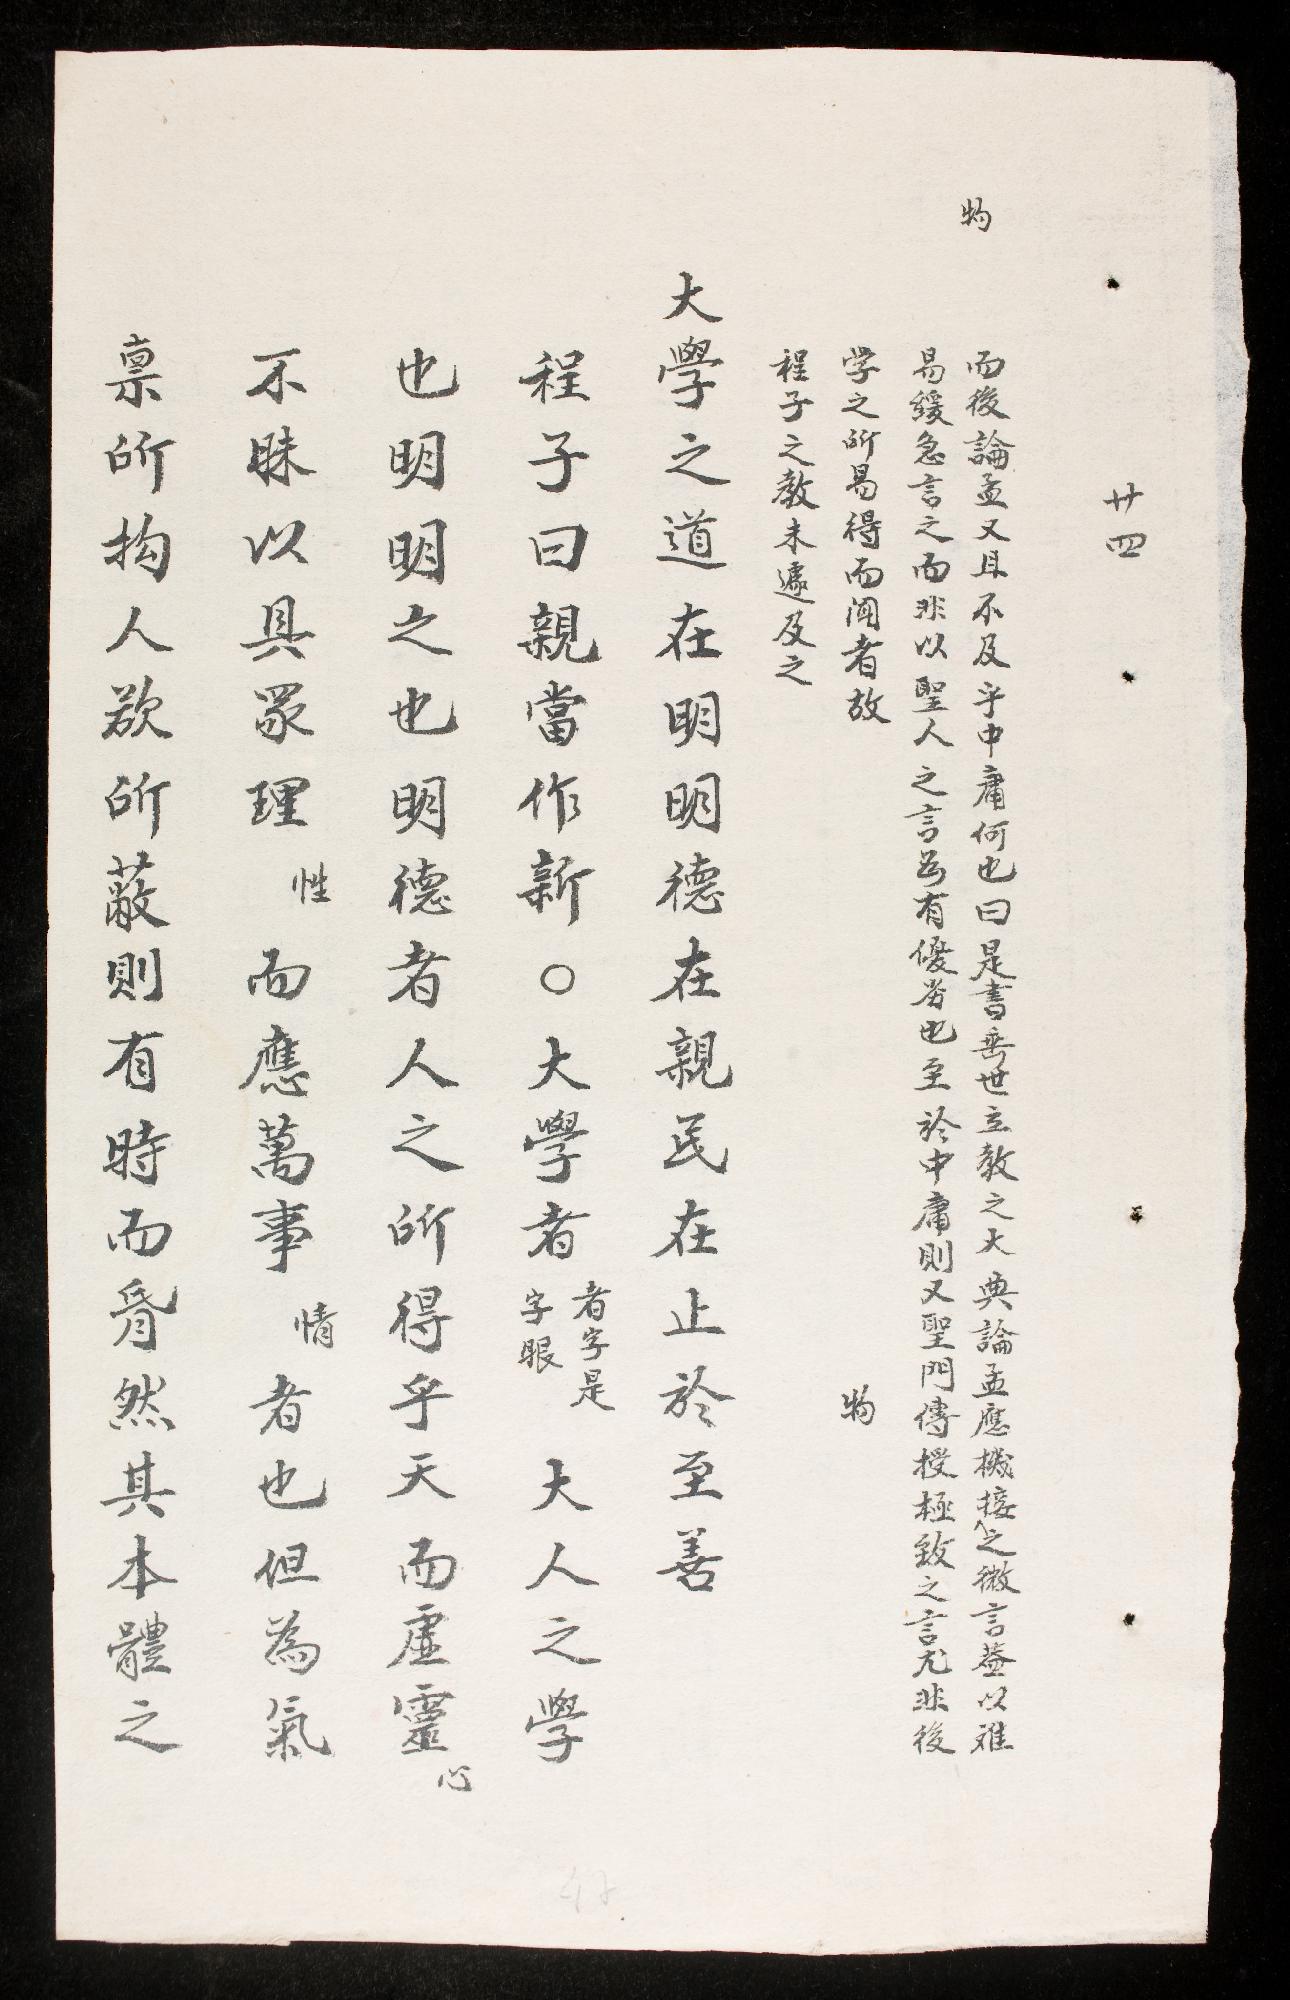 廿四
物
而後論孟又且不及乎中庸何也曰是書垂世立教之大典論孟應機接之微言蓋以难
易緩急言之而非以聖人之言為有優劣也至於中庸則又聖門傳授極致之言尤非後
学之所易得而闻者故
物
程子之教未遽及之
大學之道在明明德在親民在止於至善
程子曰親當作新○大學者者字是字眼大人之學
也明明之也明德者人之所得乎天而虛靈心
不昧以具眾理性而應萬事情者也但為氣
禀所拘人欲所蔽則有時而昏然其本體之